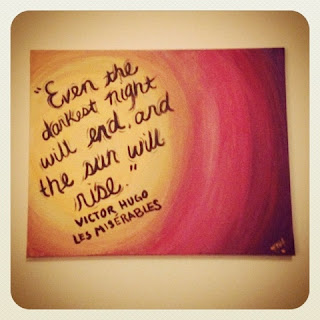 "Even the
darkest night
will end, and
the sun will
rise."
VICTOR HUGO
LES MISÉRABLES